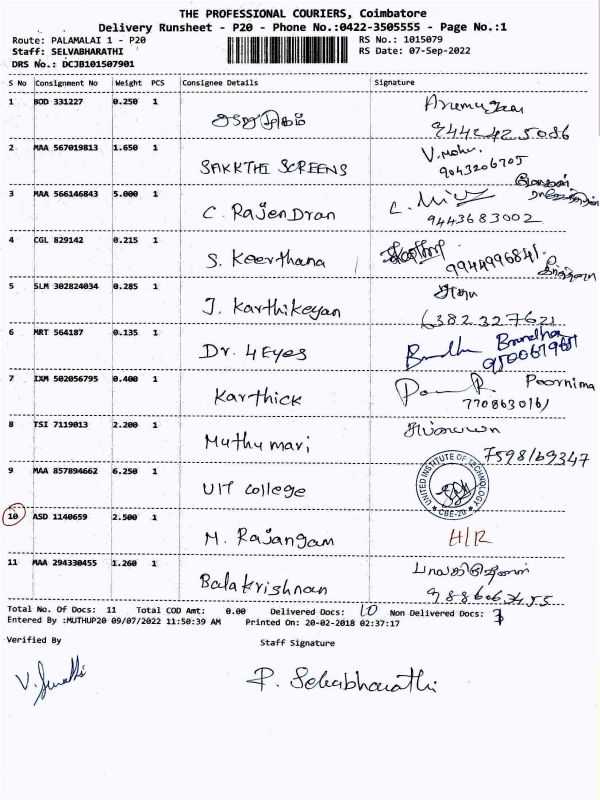 THE PROFESSIONAL COURIERS, Coimbatore
Delivery Runsheet - P20 - Phone No.:0422-3505555 - Page No.:1
Route: PALAMALAI 1 - P20 RS No.: 1015079
Staff: SELVABHARATHI RS Date: 07-Sep-2022
DRS No.: DCJB101507901
S No Consignment No Weight PCS Consignee Details Signature
1 BOD 331227 0.250 1
9442425086
2 MAA 567019813 1.650 1 SAKKTHI SCREENS
9043206705
3 MAA 566146843 5.000 1 C. RajenDran
9443683002
4 CGL 829142 0.215 1 S. Keerthana
9944996841
5 SLM 302824034 0.285 1 J. Karthikeyan
6382327621
6 MRT 564187 0.135 1 Dr. 4 Eyes
Brindha
7 IXM 502056795 0.400 1 Karthick
Poornima
7708630161
8 TSI 7119013 2.200 1 Muthu mari
7598169347
9 MAA 857894662 6.250 1 UIT college
UNITED INSTITUTE OF TECHNOLOGY
CBE-20
10 ASD 1140659 2.500 1 M. Rajangam H/R
11 MAA 294330455 1.260 1 Balakrishnan
Total No. Of Docs: 11 Total COD Amt: 0.00 Delivered Docs: 10 Non Delivered Docs:
Entered By :MUTHUP20 09/07/2022 11:50:39 AM Printed On: 20-02-2018 02:37:17
Verified By Staff Signature
P. Selvabharathi